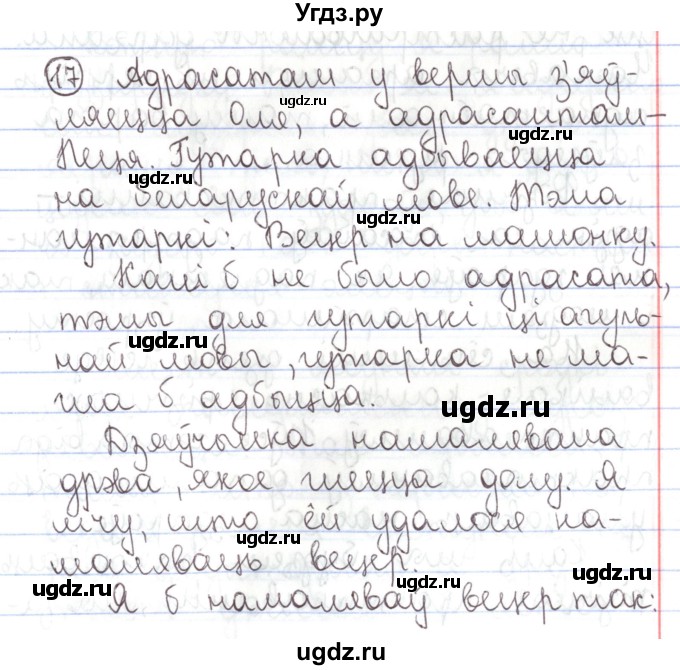 Угдз.ру
17 Адрасатам у вершы з'яў-
ляецца Оля, а адрасантам-
Пеця. Гутарка адбываецца
на беларускай мове. Тэма
гутаркі: Вецер на малюнку.
Калі б не было адрасата,
тэмы для гутаркі ці агуль-
най мовы, гутарка не ма-
гла б адбыцца.
Дзяўчынка намалявала
дрэва, якое гнецца долу. Я
лічу, што ёй удалося на-
маляваць вецер.
Я б намаляваў вецер так:
угдз.ру